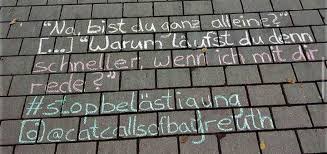 "Na, bist du ganz alleine?"
[...] "Warum läufst du denn
schneller, wenn ich mit dir
rede?"
#stopbelästigung
@catcallsofbayreuth